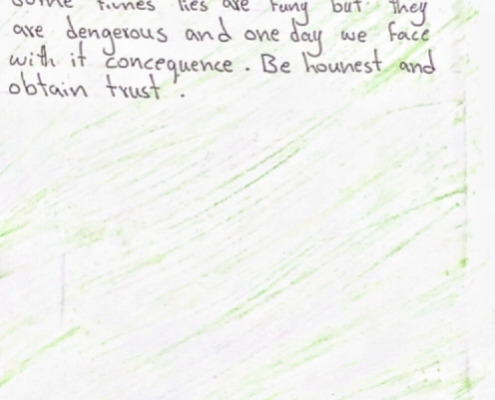 some times lies are funy but they
are dengerous and one day we face
with it concequence. Be hounest and
obtain trust.